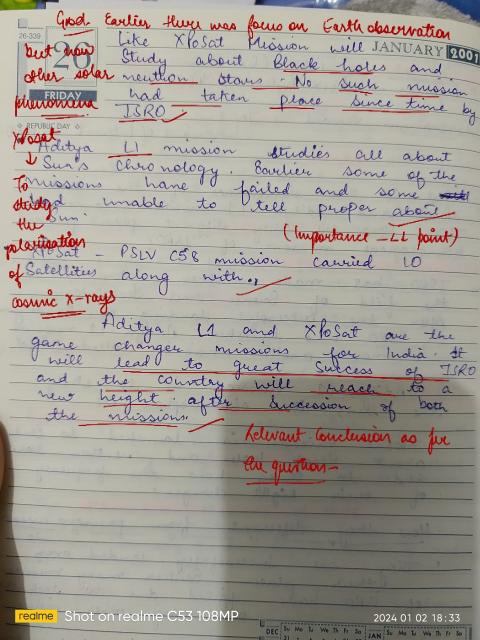 Good. Earlier there was focus on Earth observation
but now
other solar
phenomena
26-339
26
FRIDAY
REPUBLIC DAY
JANUARY 2001
Like XPoSat Mission will
Study about Black holes and
neutron stars. No such mission
had taken place since time by
ISRO
XPoSat
↓
To
study
the
polarisation
of
cosmic X-rays
Aditya L1 mission studies all about
Sun's chronology. Earlier some of the
missions have failed and some
had unable to tell proper about
Sun.
(Importance - L1 point)
XPoSat - PSLV C58 mission carried 10
Satellites along with.
Aditya L1 and XPoSat are the
game changer missions for India. It
will lead to great Success of ISRO
and the country will reach to a
new height after Succession of both
the missions.
Relevant Conclusion as per
the question-
realme Shot on realme C53 108MP
2024 01 02 18:33
DEC Su Mo Tu We Th Fr Sa JAN Su Mo Tu We Th Fr Sa